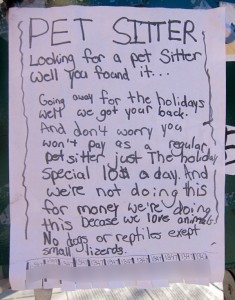 PET SITTER
Looking for a pet Sitter
well you found it...
Going away for the holidays
well we got your back!
And don't worry you
won't pay as a regular
pet sitter just The holiday
special 10$ a day. And
we're not doing this
for money we're doing
this becase we love animals!
No dogs or reptiles exept
small lizerds.